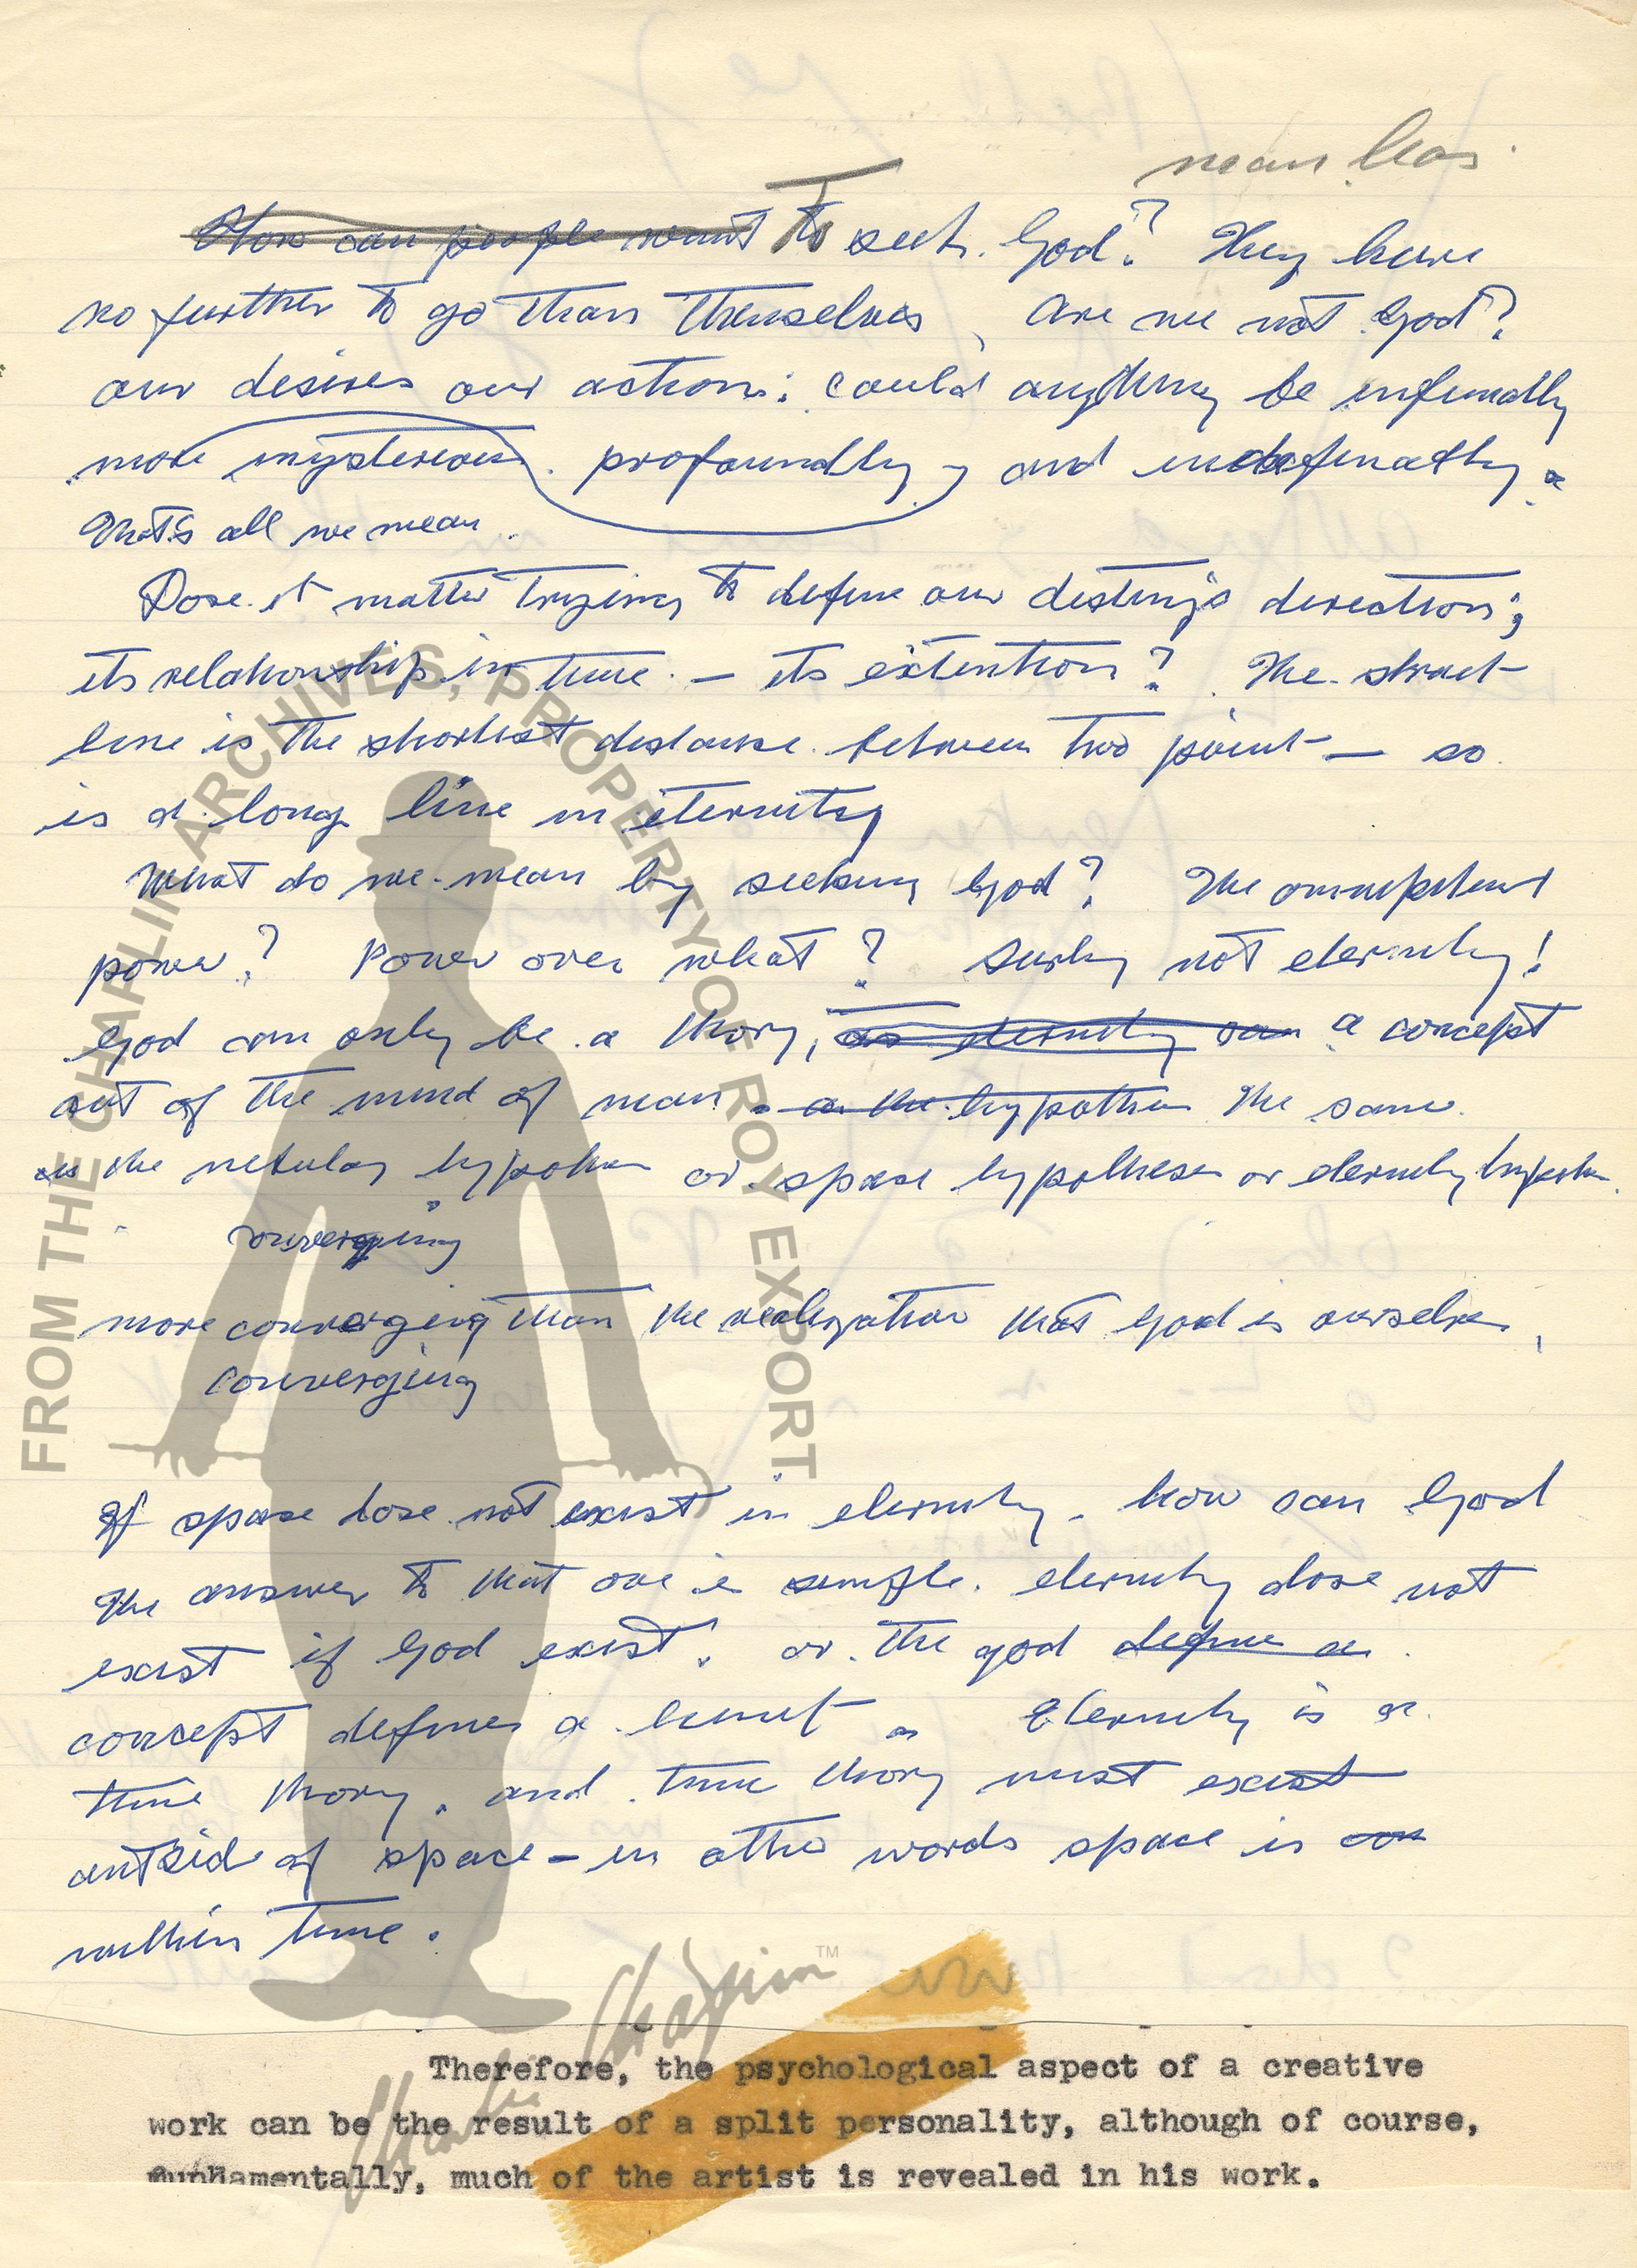 man has
How can people want To seek God? They have
no further to go than themselves, are we not God?
our desires our action: could anything be infinnatly
more mysterious. profoundly, and
That's all we mean.
Dose it matter trying to define our destiny's direction;
its relationship in time. — its extention? The strait
line is the shortest distance between two point — so
is a long line in eternity
What do we mean by seeking God? The omnipotent
power? Power over what? Surly not eternity!
God can only be a thory, as eternity can a concept
out of the mind of man. as the hypothes The same
as the nebular or space hypotheses or eternity
converging
more converging than the realization that God is ourselves,
converging
If space dose not exist in eternity. how can God
The answer to that one is simple. eternity dose not
exist if God exist. or the god define a
concept defines a limit. as Eternity is a
time thory. and time thory must exist
outside of space – in other words space is
within time.
Therefore, the psychological aspect of a creative
work can be the result of a split personality, although of course,
fundamentally, much of the artist is revealed in his work.
FROM THE CHAPLIN ARCHIVES, PROPERTY OF ROY EXPORT
Charlie Chaplin™